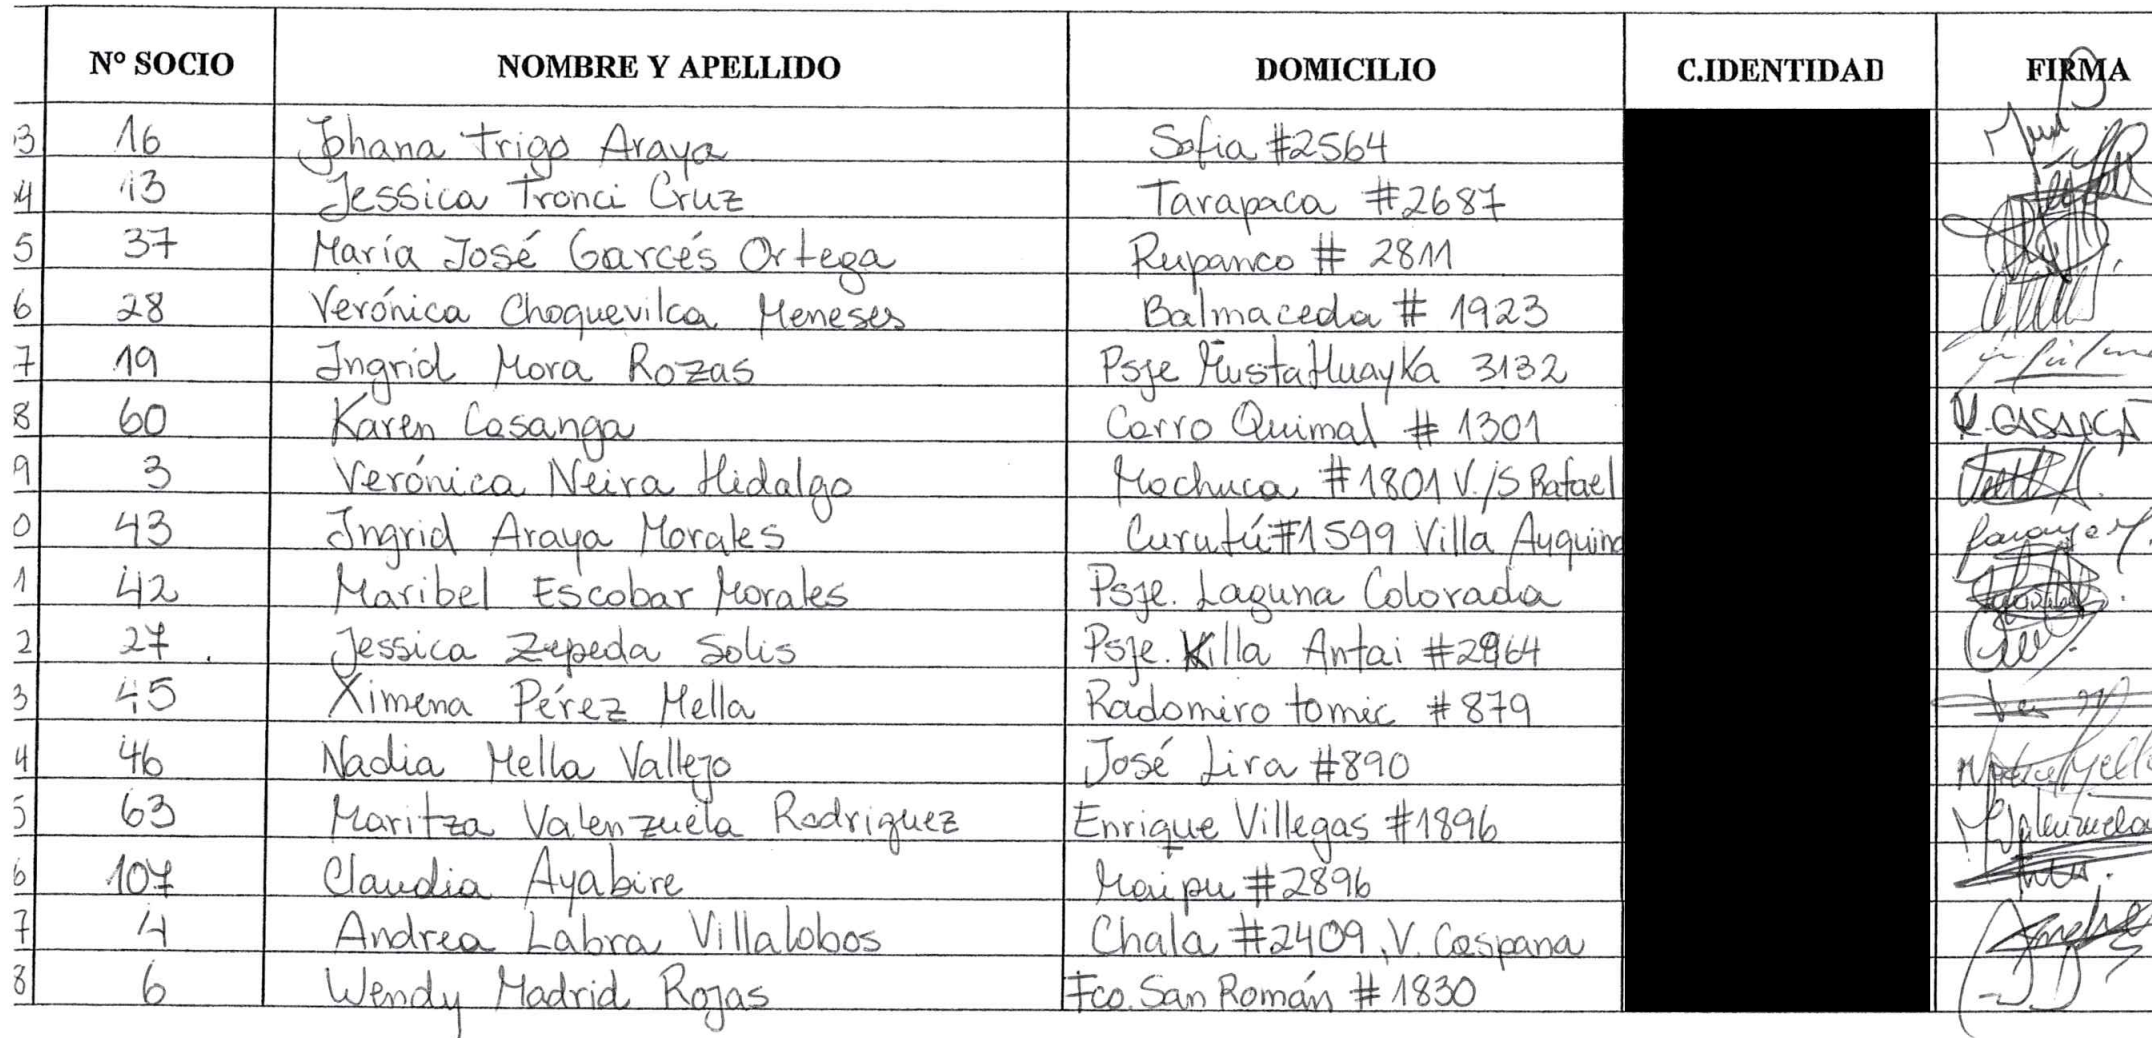 N° SOCIO NOMBRE Y APELLIDO DOMICILIO C.IDENTIDAD FIRMA
3 16 Johana Trigo Araya Sofia #2564
4 13 Jessica Tronci Cruz Tarapaca #2687
5 37 María José Garcés Ortega Rupanco # 2811
6 28 Verónica Choquevilca Meneses Balmaceda # 1923
7 19 Ingrid Mora Rozas Psje 3132
8 60 Karen Casanga Cerro Quimal # 1301
9 3 Verónica Neira Hidalgo Machuca #1801 V./S Rafael
0 43 Ingrid Araya Morales Curutú #1599 Villa Ayquina
1 42 Maribel Escobar Morales Psje. Laguna Colorada
2 27 Jessica Zepeda Solis Psje. Killa Antai #2964
3 45 Ximena Pérez Mella Radomiro tomic #879
4 46 Nadia Mella Vallejo José Lira #890
5 63 Maritza Valenzuela Rodriguez Enrique Villegas #1896 M Valenzuela
6 107 Claudia Ayabire Maipu #2896
7 4 Andrea Labra Villalobos Chala #2409, V. Caspana
8 6 Wendy Madrid Rojas Fco. San Román # 1830